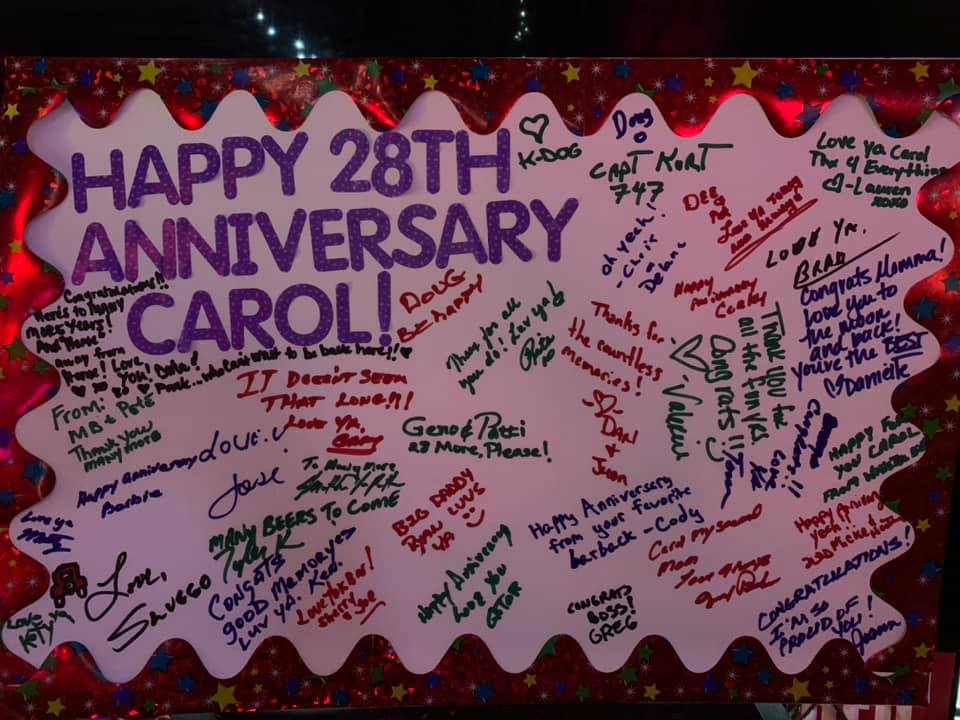 HAPPY 28TH
ANNIVERSARY
CAROL!
K-DOG
Doug
CAPT KURT
747
Love Ya Carol
Thx 4 Everything
-Lauren
XOXO
DEE
Love Ya
LOVE YA,
BRAD
oh yeah!
- Chris
Happy
Anniversary
Congratulations!!
Here's to many
more years!
And Those
away from
home! Love
you,
to be back here!!
DOUG
BE HAPPY
Thanks for all
you do! Luv ya!
Thanks for
the countless
memories!
Dari
&
Jason
Thank you for
all the fun yrs.
Congrats!!
Valerie
Congrats Momma!
Love you to
the moon
and back!
You're the BEST
Danielle
IT DOESN'T SEEM
THAT LONG!?!
LOVE YA,
GARY
From:
MB & Pete
Thank you
many more
Geno & Patti
28 More, Please!
Happy Anniversary
Barbie
LOVE
Jose
To Many More
MANY BEERS TO COME
Tyler K
BIG DADDY
RYAN LUVS
YA
Happy Anniversary
from your favorite
barback - Cody
HAPPY FOR
YOU CAROL
FROM
Love ya
Love,
SLUGGO
LOVE
KATY
CONGATS
good MEMORYES
LUV YA. Ken.
LOVE YOU
Joe
Happy Anniversary
Love You
GATOR
CONGRATS
BOSS!
GREG
Carol my second
mom
Happy Anniversary
CONGRATULATIONS!
I'M SO
PROUD OF
YOU!
Joann